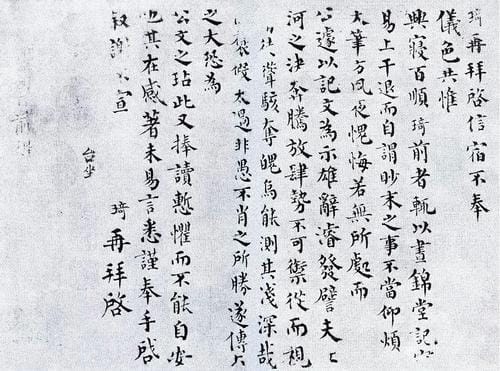 琦再拜啓信宿不奉
儀色共惟
興寢百順琦前者輒以晝錦堂記
易上干退而自謂眇末之事不當仰煩
大筆方夙夜愧悔若無所處而
公遽以記文為示雄辭濬發譬夫
河之決奔騰放肆勢不可禦從而視
聳駭奪魄烏能測其淺深哉
褒假太過非愚不肖之所勝遂傳
之大恐為
公文之玷此又捧讀慙懼而不能自安
也其在感著未易言悉謹奉手啓
敘謝不宣
琦再拜啓
台坐